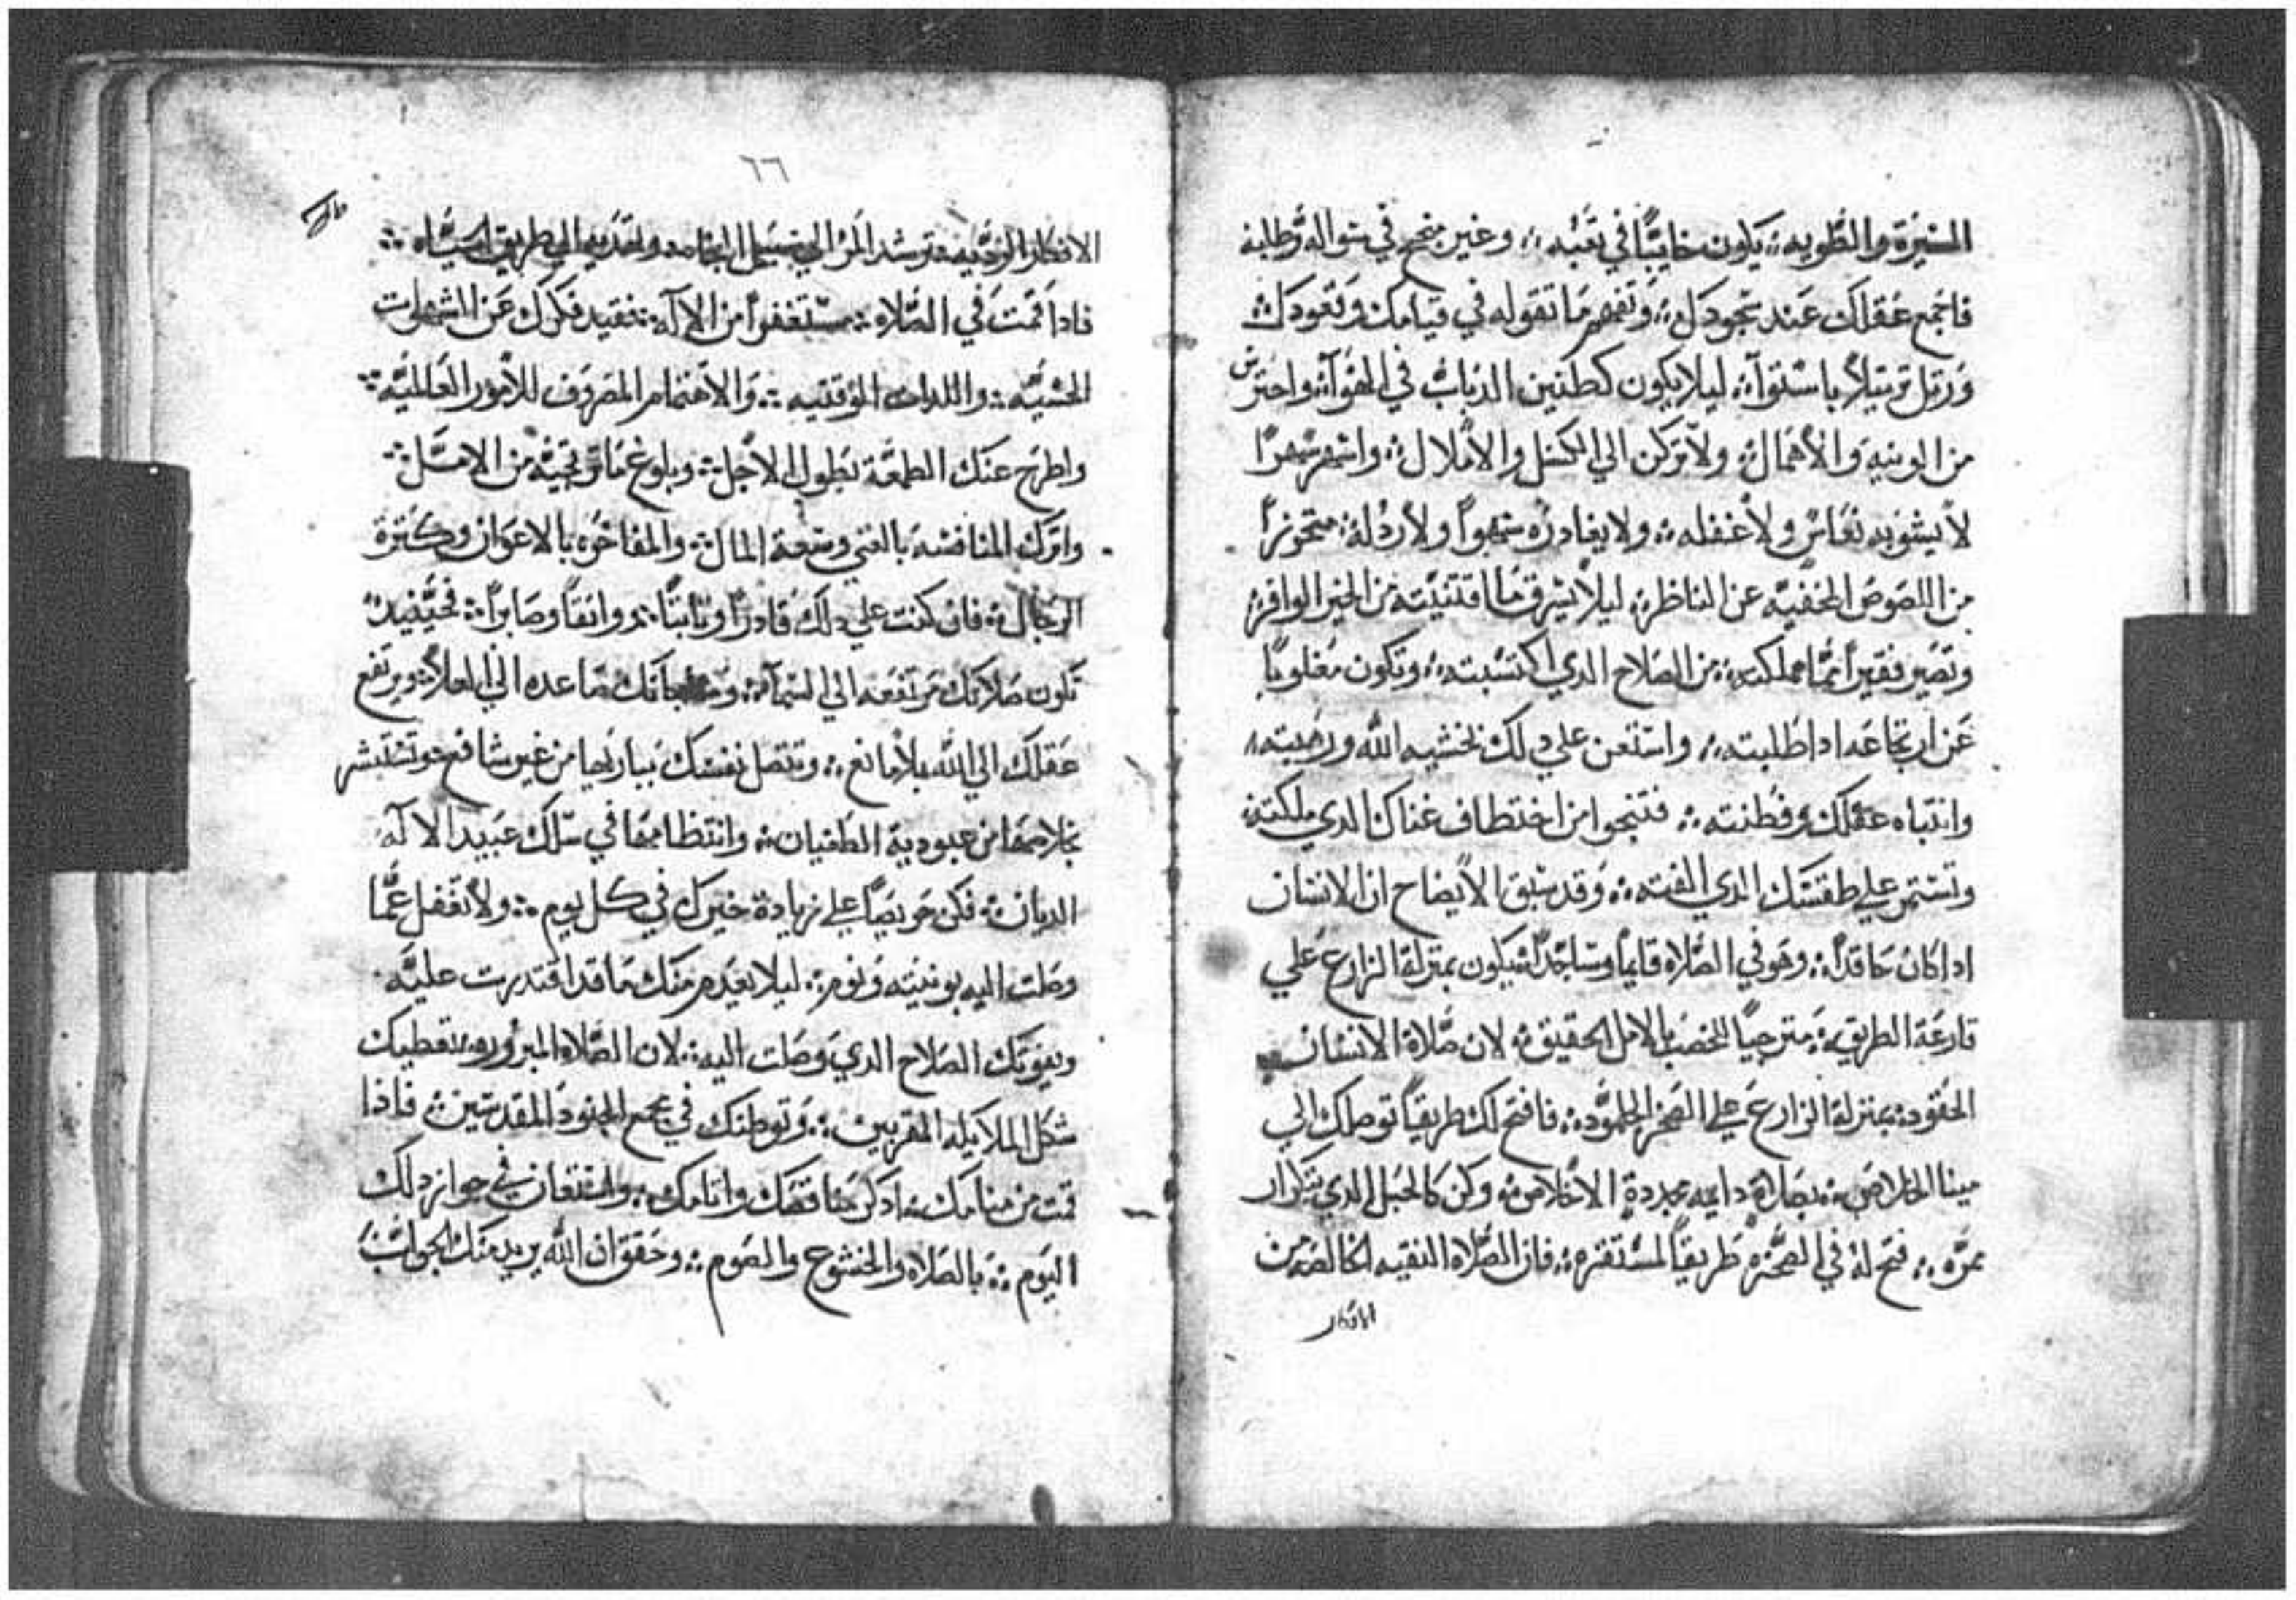 السيرة والطويه ؞ يكون خايبًا في تعبه ؞ وغير منجح في سواله وطلبه
فاجمع عقلك عند سجودك ؞ وتفهم ما تقوله في قيامك وقعودك ؞
ورتل ترتيلاً باستوآ ؞ ليلا يكون كطنين الدباب في الهوآ ؞ واحترس
من الونيه والأهمال ؞ ولا تركن الي الكسل والأملال ؞ واسهر سهرًا
لا يشوبه نعاس ولا غفله ؞ ولا يغادره سهواً ولا رذلة ؞ متحرزاً
من اللصوص المخفيه عن الناظر ؞ ليلا يسرق ما اقتنيته من الخير الوافر ؞
وتصير فقيراً مما ملكته ؞ من الصلاح الدي اكتسبته ؞ وتكون مغلوبًا
عن ارتجاعه ادا طلبته ؞ واستعن علي دلك بخشية الله ورهبته ؞
وانتباه عقلك وفطنته ؞ فتنجوا من اختطاف غناك الدي ملكته ؞
وتستمر علي طقسك الدي الفته ؞ وقد سبق الأيضاح ان الانسان
ادا كان حاقداً ؞ وهو في الصلاه قايماً وساجداً ؞ يكون بمنزلة الزارع علي
قارعة الطريق ؞ مترجياً للخصب بالامل الحقيق ؞ لان صلاة الانسان
الحقود ؞ بمنزلة الزارع علي الصخر الجلمود ؞ فافتح لك طريقاً توصلك الي
مينا الخلاص ؞ بصلاة دايمه مجددة الأخلاص ؞ وكن كالحبل الدي بتكرار
ممرّه ؞ فتح له في الصخره طريقاً لمستقره ؞ فان الصلاه النقيه الخالصه من
الافكار
٦٦
الافكار الرديه ؞ ترشد المر الي سبيل النجاه ؞ وتهديه الي طريق الحياه ؞
فادا قمت في الصلاه ؞ مستغفراً من الالآه ؞ فقيد فكرك عن الشهوات
الحسيّه ؞ واللدات الوقتيه ؞ والاهتمام المصروف للأمور العالميّه ؞
واطرح عنك الطمعة بطول الأجل ؞ وبلوغ ما ترتجيه من الامل ؞
واترك المنافسه بالغني وسعة المال ؞ والمفاخره بالاعوان وكثرة
الرجال ؞ فان كنت علي دلك قادراً وتابتاً ؞ وواثقاً وصابراً ؞ فحينيد
تكون صلاتك مرتفعه الي السمآ ؞ صاعده الي العلاء ؞ ويرتفع
عقلك الي الله بلا مانع ؞ وتتصل نفسك بباريها من غير شافع ؞ وتستبشر
بخلاصها من عبودية الطغيان ؞ وانتظامها في سلك عبيد الالآه
الديان ؞ فكن حريصاً علي زيادة خيرك في كل يوم ؞ ولا تغفل عما
وصلت اليه بونيه ونوم ؞ ليلا يعدم منك ما قد اقتدرت عليه
ويفوتك الصلاح الدي وصلت اليه ؞ لان الصلاه المبروره تعطيك
شكل الملايكه المقربين ؞ وتوطنك في مجمع الجنود المقدسين ؞ فاذا
قمت من منامك ؞ ادكر مناقصك واتامك ؞ واستعان في جواز دلك
اليوم ؞ بالصلاه والخشوع والصوم ؞ وحقق ان الله يريد منك الجواب